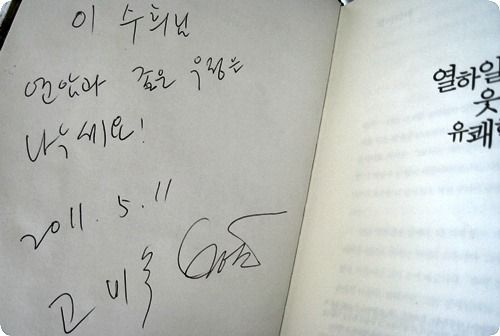 이 수희님
연암과 깊은 우정을
나누세요!
2011. 5. 11
고 미숙
열하일
웃
유쾌한